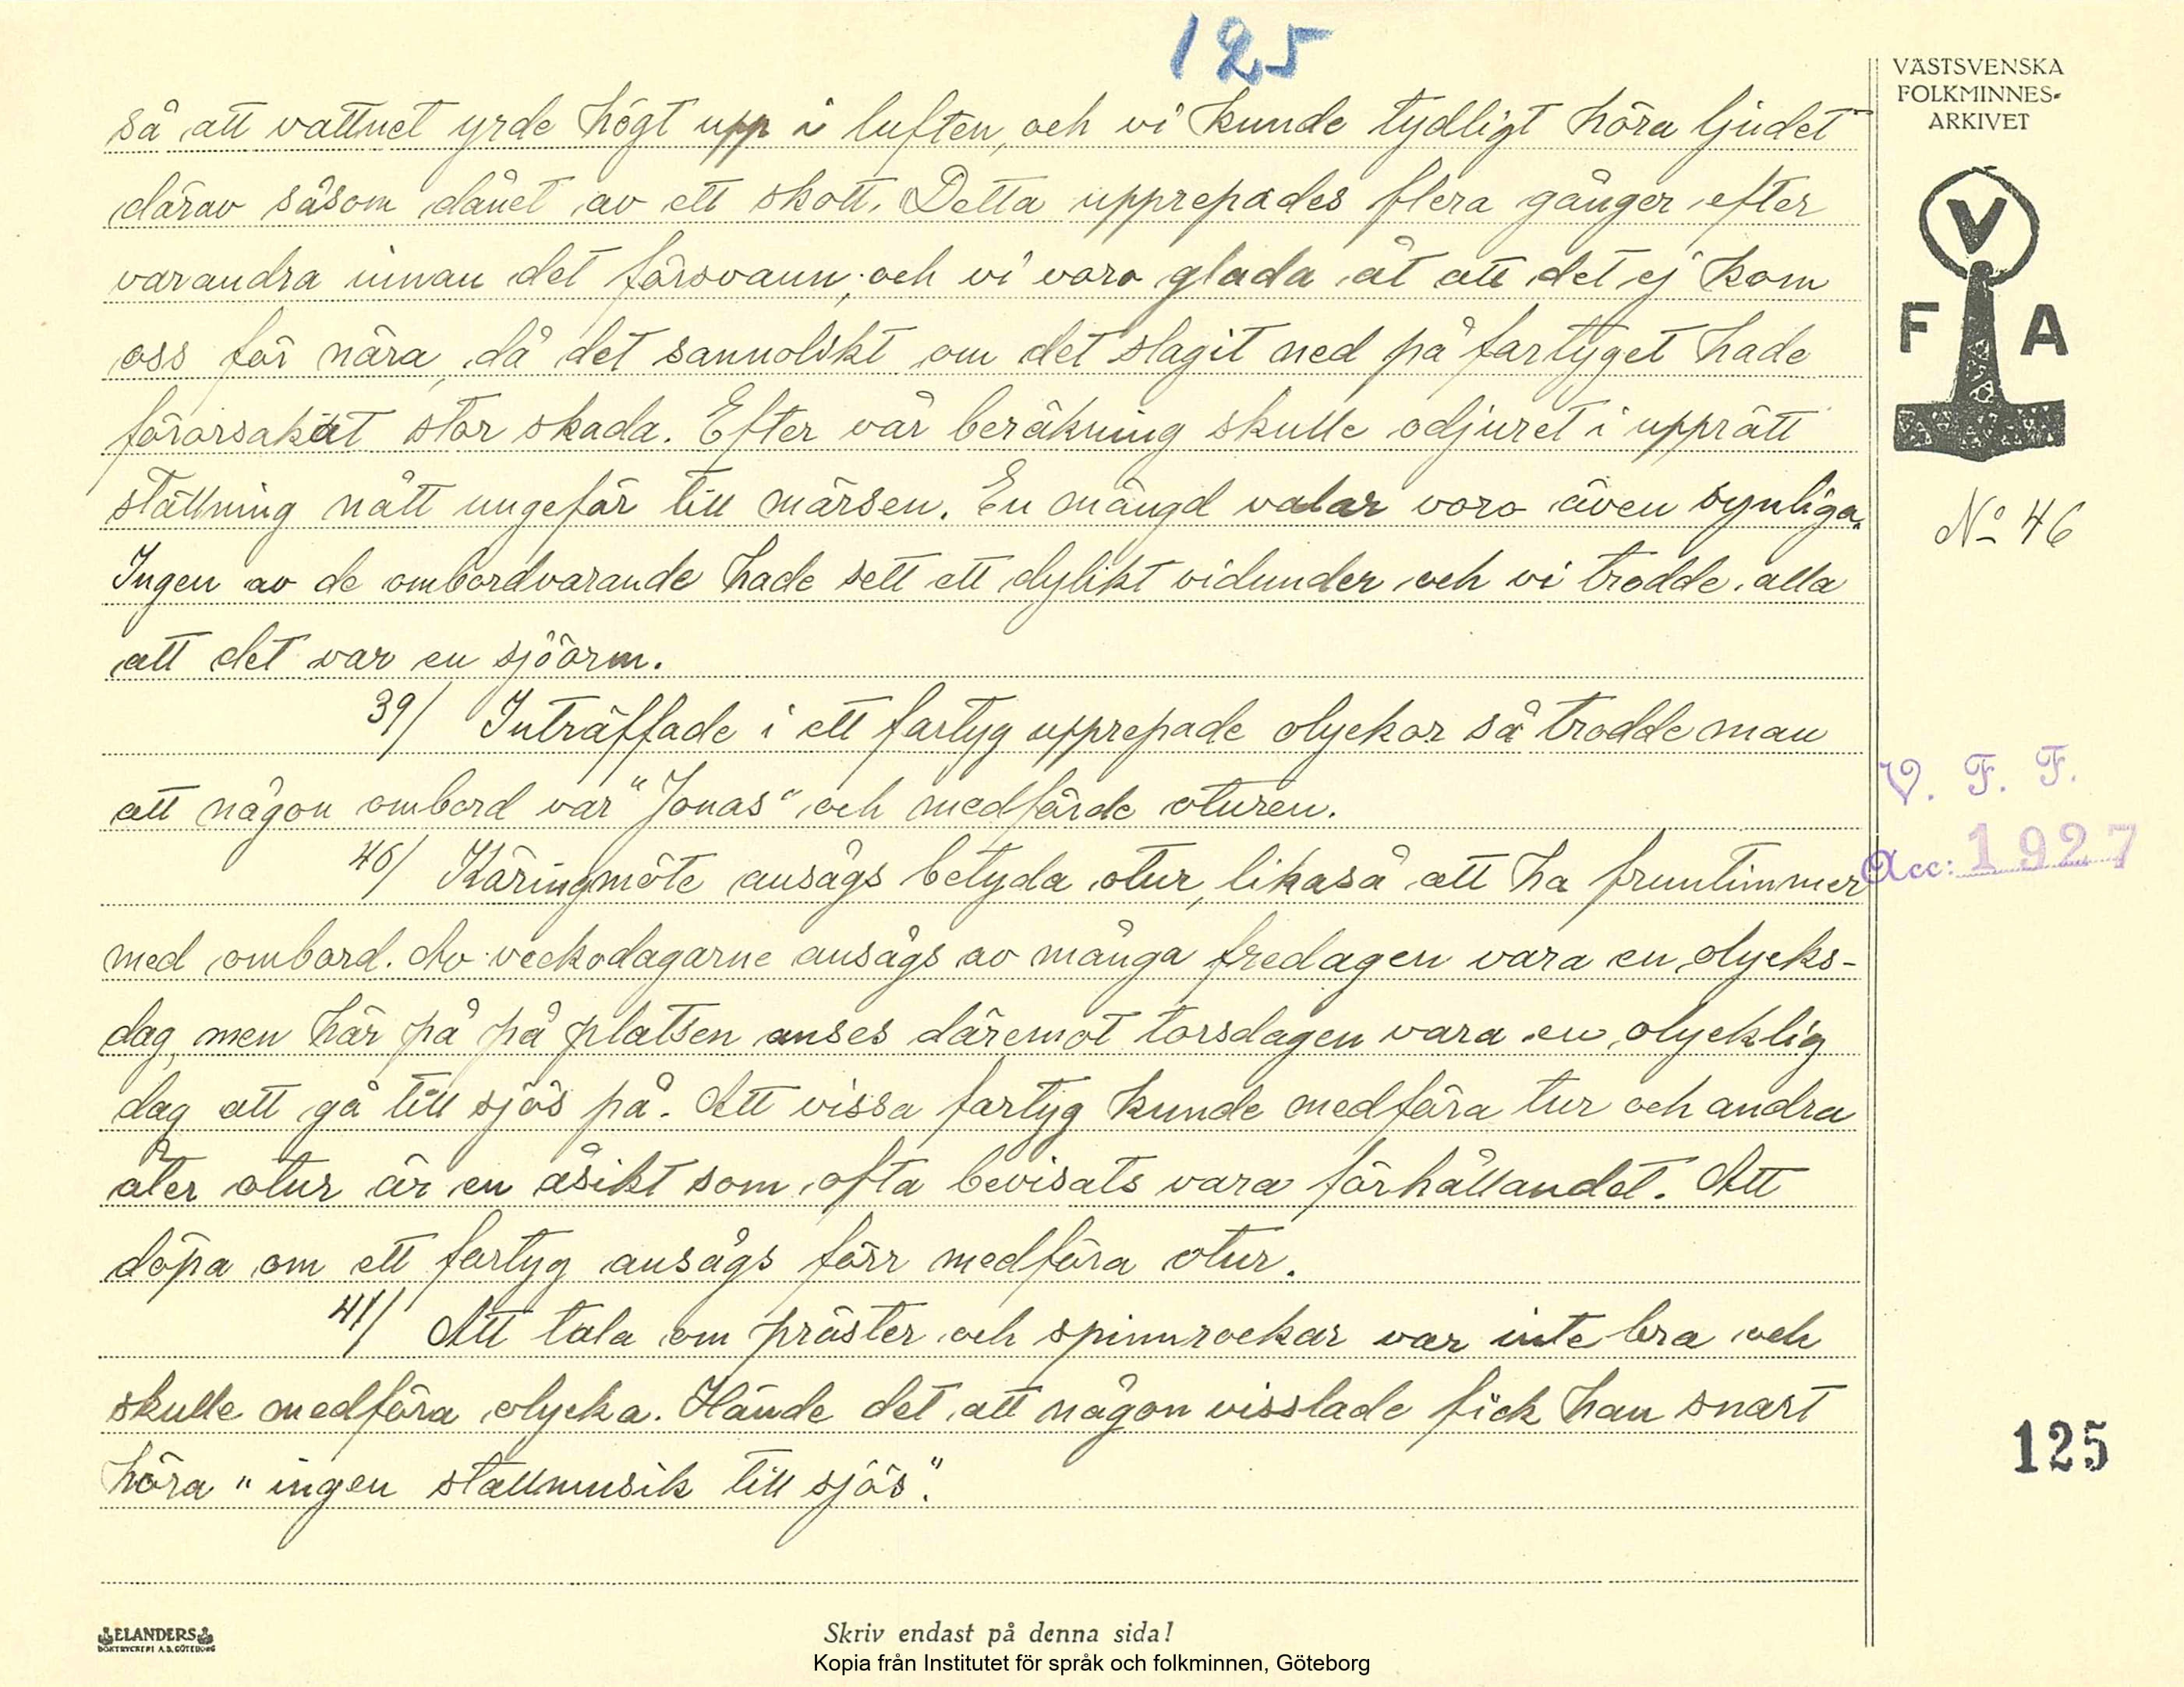 125
så att vattnet yrde högt upp i luften, och vi kunde tydligt höra ljudet
därav såsom dånet av ett skott. Detta upprepades flera gånger efter
varandra innan det försvann, och vi voro glada åt att det ej kom
oss för nära, då det sannolikt om det slagit ned på fartyget hade
förorsakat stor skada. Efter vår beräkning skulle odjuret i upprätt
ställning nått ungefär till märsen. En mängd valar voro även synliga.
Ingen av de ombordvarande hade sett ett dylikt vidunder och vi trodde alla
att det var en sjöorm.
39/ Inträffade i ett fartyg upprepade olyckor så trodde man
att någon ombord var "Jonas" och medförde oturen.
40/ Käringmöte ansågs betyda otur, likaså att ha fruntimmer
med ombord. Av veckodagarne ansågs av många fredagen vara en olycks-
dag, men här på på platsen anses däremot torsdagen vara en olycklig
dag att gå till sjös på. Att vissa fartyg kunde medföra tur och andra
åter otur är en åsikt som ofta bevisats vara förhållandet. Att
döpa om ett fartyg ansågs förr medföra otur.
41/ Att tala om präster och spinnrockar var inte bra och
skulle medföra olycka. Hände det att någon visslade fick han snart
höra "ingen stallmusik till sjös".
VÄSTSVENSKA
FOLKMINNES-
ARKIVET
V
F A
No 46
V. F. F.
Acc: 1927
125
ELANDERS
BOKTRYCKERI A.B. GÖTEBORG
Skriv endast på denna sida!
Kopia från Institutet för språk och folkminnen, Göteborg